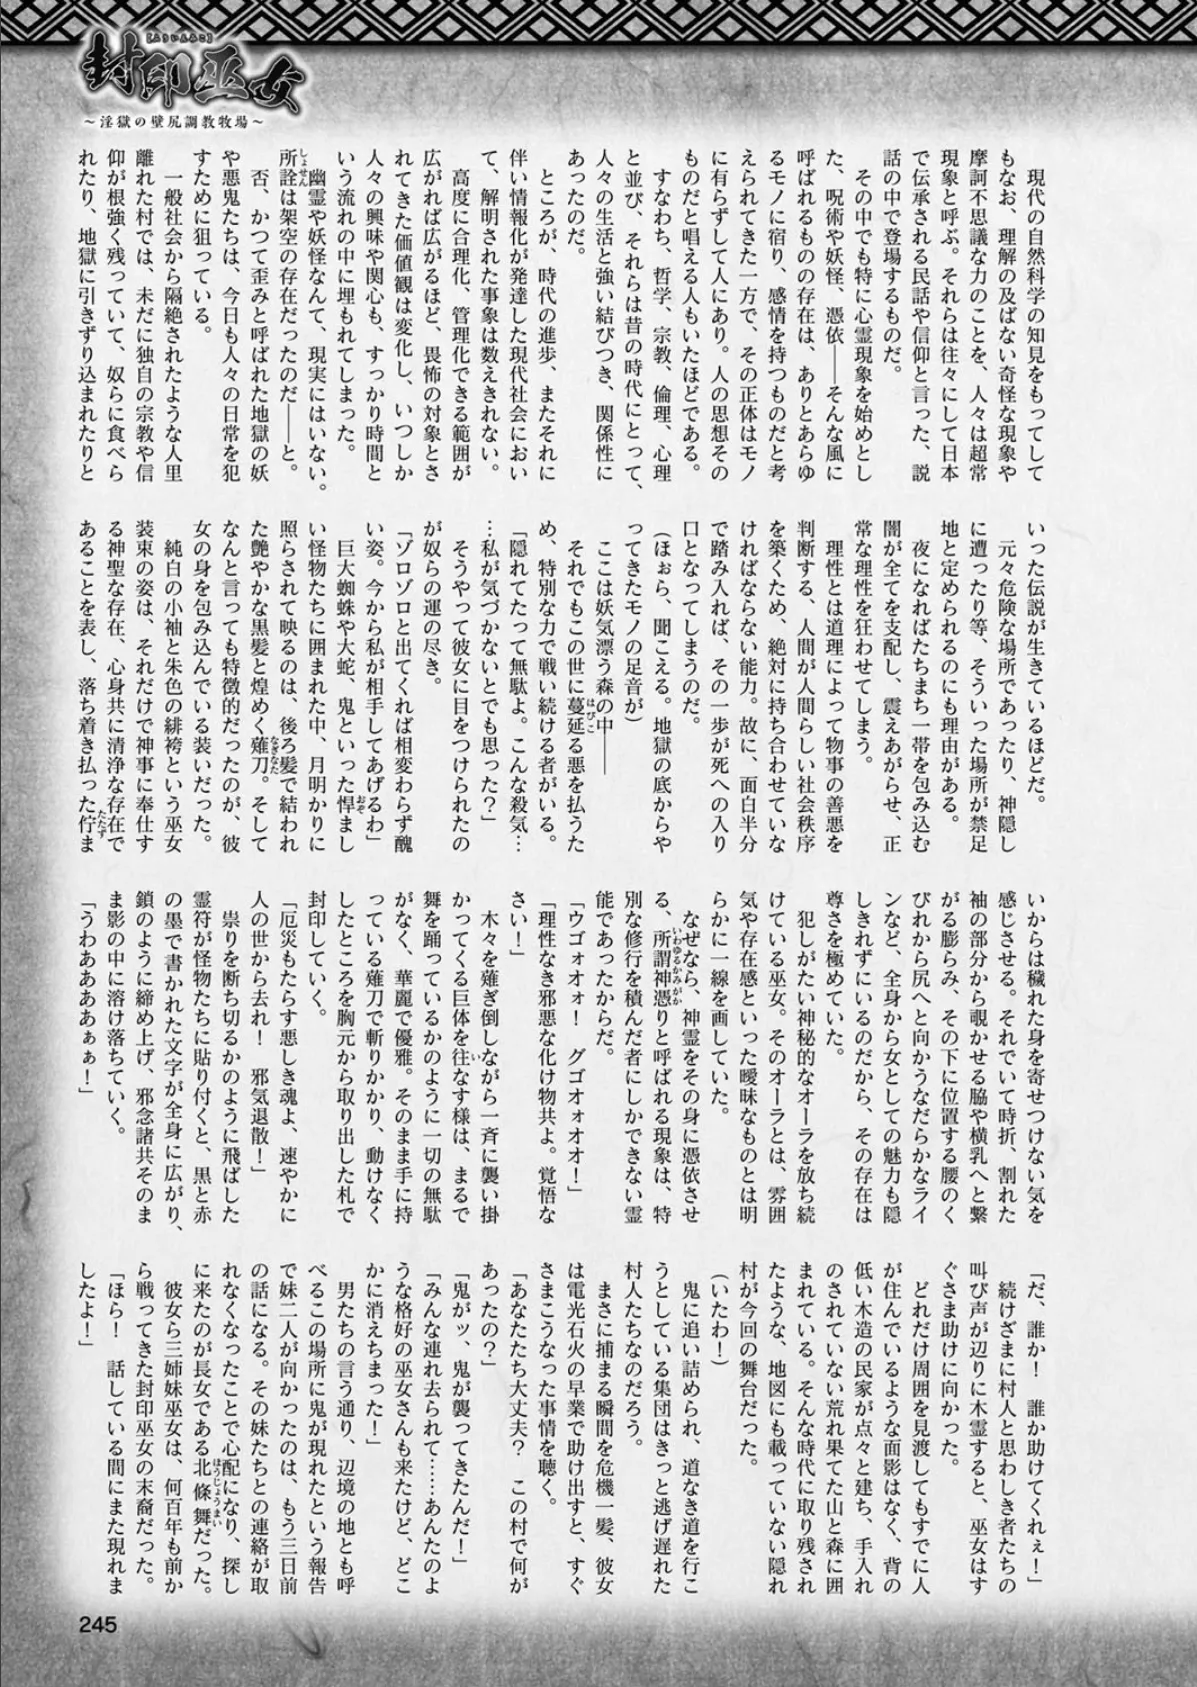 封印巫女
【ふういんみこ】
～淫獄の壁尻調教牧場～
　現代の自然科学の知見をもってして
もなお、理解の及ばない奇怪な現象や
摩訶不思議な力のことを、人々は超常
現象と呼ぶ。それらは往々にして日本
で伝承される民話や信仰と言った、説
話の中で登場するものだ。
　その中でも特に心霊現象を始めとし
た、呪術や妖怪、憑依――そんな風に
呼ばれるものの存在は、ありとあらゆ
るモノに宿り、感情を持つものだと考
えられてきた一方で、その正体はモノ
に有らずして人にあり。人の思想その
ものだと唱える人もいたほどである。
　すなわち、哲学、宗教、倫理、心理
と並び、それらは昔の時代にとって、
人々の生活と強い結びつき、関係性に
あったのだ。
　ところが、時代の進歩、またそれに
伴い情報化が発達した現代社会におい
て、解明された事象は数えきれない。
　高度に合理化、管理化できる範囲が
広がれば広がるほど、畏怖の対象とさ
れてきた価値観は変化し、いつしか
人々の興味や関心も、すっかり時間と
いう流れの中に埋もれてしまった。
　幽霊や妖怪なんて、現実にはいない。
所詮は架空の存在だったのだ――と。
　否、かつて歪みと呼ばれた地獄の妖
や悪鬼たちは、今日も人々の日常を犯
すために狙っている。
　一般社会から隔絶されたような人里
離れた村では、未だに独自の宗教や信
仰が根強く残っていて、奴らに食べら
れたり、地獄に引きずり込まれたりと
いった伝説が生きているほどだ。
　元々危険な場所であったり、神隠し
に遭ったり等、そういった場所が禁足
地と定められるのにも理由がある。
　夜になればたちまち一帯を包み込む
闇が全てを支配し、震えあがらせ、正
常な理性を狂わせてしまう。
　理性とは道理によって物事の善悪を
判断する、人間が人間らしい社会秩序
を築くため、絶対に持ち合わせていな
ければならない能力。故に、面白半分
で踏み入れば、その一歩が死への入り
口となってしまうのだ。
（ほぉら、聞こえる。地獄の底からや
ってきたモノの足音が）
　ここは妖気漂う森の中――
　それでもこの世に蔓延る悪を払うた
め、特別な力で戦い続ける者がいる。
「隠れてたって無駄よ。こんな殺気…
…私が気づかないとでも思った？」
　そうやって彼女に目をつけられたの
が奴らの運の尽き。
「ゾロゾロと出てくれば相変わらず醜
い姿。今から私が相手してあげるわ」
　巨大蜘蛛や大蛇、鬼といった悍まし
い怪物たちに囲まれた中、月明かりに
照らされて映るのは、後ろ髪で結われ
た艶やかな黒髪と煌めく薙刀。そして
なんと言っても特徴的だったのが、彼
女の身を包み込んでいる装いだった。
　純白の小袖と朱色の緋袴という巫女
装束の姿は、それだけで神事に奉仕す
る神聖な存在、心身共に清浄な存在で
あることを表し、落ち着き払った佇ま
いからは穢れた身を寄せつけない気を
感じさせる。それでいて時折、割れた
袖の部分から覗かせる脇や横乳へと繋
がる膨らみ、その下に位置する腰のく
びれから尻へと向かうなだらかなライ
ンなど、全身から女としての魅力も隠
しきれずにいるのだから、その存在は
尊さを極めていた。
　犯しがたい神秘的なオーラを放ち続
けている巫女。そのオーラとは、雰囲
気や存在感といった曖昧なものとは明
らかに一線を画していた。
　なぜなら、神霊をその身に憑依させ
る、所謂神憑りと呼ばれる現象は、特
別な修行を積んだ者にしかできない霊
能であったからだ。
「ウゴォオォ！　グゴオォオオ！」
「理性なき邪悪な化け物共よ。覚悟な
さい！」
　木々を薙ぎ倒しながら一斉に襲い掛
かってくる巨体を往なす様は、まるで
舞を踊っているかのように一切の無駄
がなく、華麗で優雅。そのまま手に持
っている薙刀で斬りかかり、動けなく
したところを胸元から取り出した札で
封印していく。
「厄災もたらす悪しき魂よ、速やかに
人の世から去れ！　邪気退散！」
　祟りを断ち切るかのように飛ばした
霊符が怪物たちに貼り付くと、黒と赤
の墨で書かれた文字が全身に広がり、
鎖のように締め上げ、邪念諸共そのま
ま影の中に溶け落ちていく。
「うわああああぁぁ！」
「だ、誰か！　誰か助けてくれぇ！」
　続けざまに村人と思わしき者たちの
叫び声が辺りに木霊すると、巫女はす
ぐさま助けに向かった。
　どれだけ周囲を見渡してもすでに人
が住んでいるような面影はなく、背の
低い木造の民家が点々と建ち、手入れ
のされていない荒れ果てた山と森に囲
まれている。そんな時代に取り残され
たような、地図にも載っていない隠れ
村が今回の舞台だった。
（いたわ！）
　鬼に追い詰められ、道なき道を行こ
うとしている集団はきっと逃げ遅れた
村人たちなのだろう。
　まさに捕まる瞬間を危機一髪、彼女
は電光石火の早業で助け出すと、すぐ
さまこうなった事情を聴く。
「あなたたち大丈夫？　この村で何が
あったの？」
「鬼がッ、鬼が襲ってきたんだ！」
「みんな連れ去られて……あんたのよ
うな格好の巫女さんも来たけど、どこ
かに消えちまった！」
　男たちの言う通り、辺境の地とも呼
べるこの場所に鬼が現れたという報告
で妹二人が向かったのは、もう三日前
の話になる。その妹たちとの連絡が取
れなくなったことで心配になり、探し
に来たのが長女である北條舞だった。
　彼女ら三姉妹巫女は、何百年も前か
ら戦ってきた封印巫女の末裔だった。
「ほら！　話している間にまた現れま
したよ！」
245